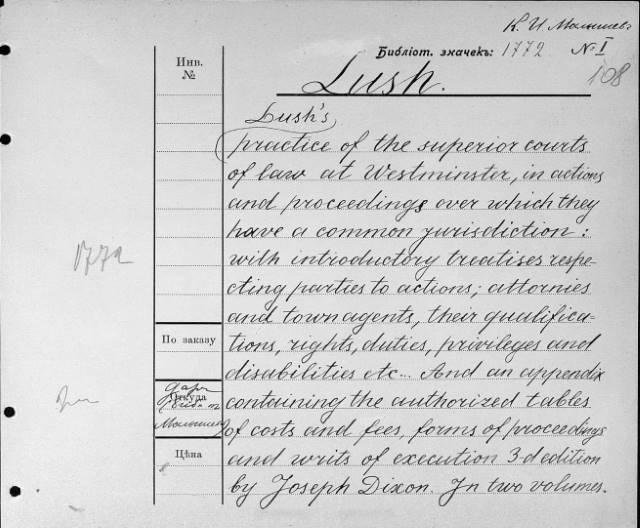 К. И. Малышевъ
Библіот. значекъ: 1772 № I
108
Инв.
№
Lush.
Lush's
practice of the superior courts
of law at Westminster, in actions
and proceedings over which they
have a common jurisdiction:
with introductory treatises respe-
cting parties to actions; attornies
and town agents, their qualifica-
tions, rights, duties, privileges and
disabilities etc... And an appendix
containing the authorized tables
of costs and fees, forms of proceedings
and writs of execution 3-d edition
by Joseph Dixon. In two volumes.
1772
По заказу
Откуда
Цѣна